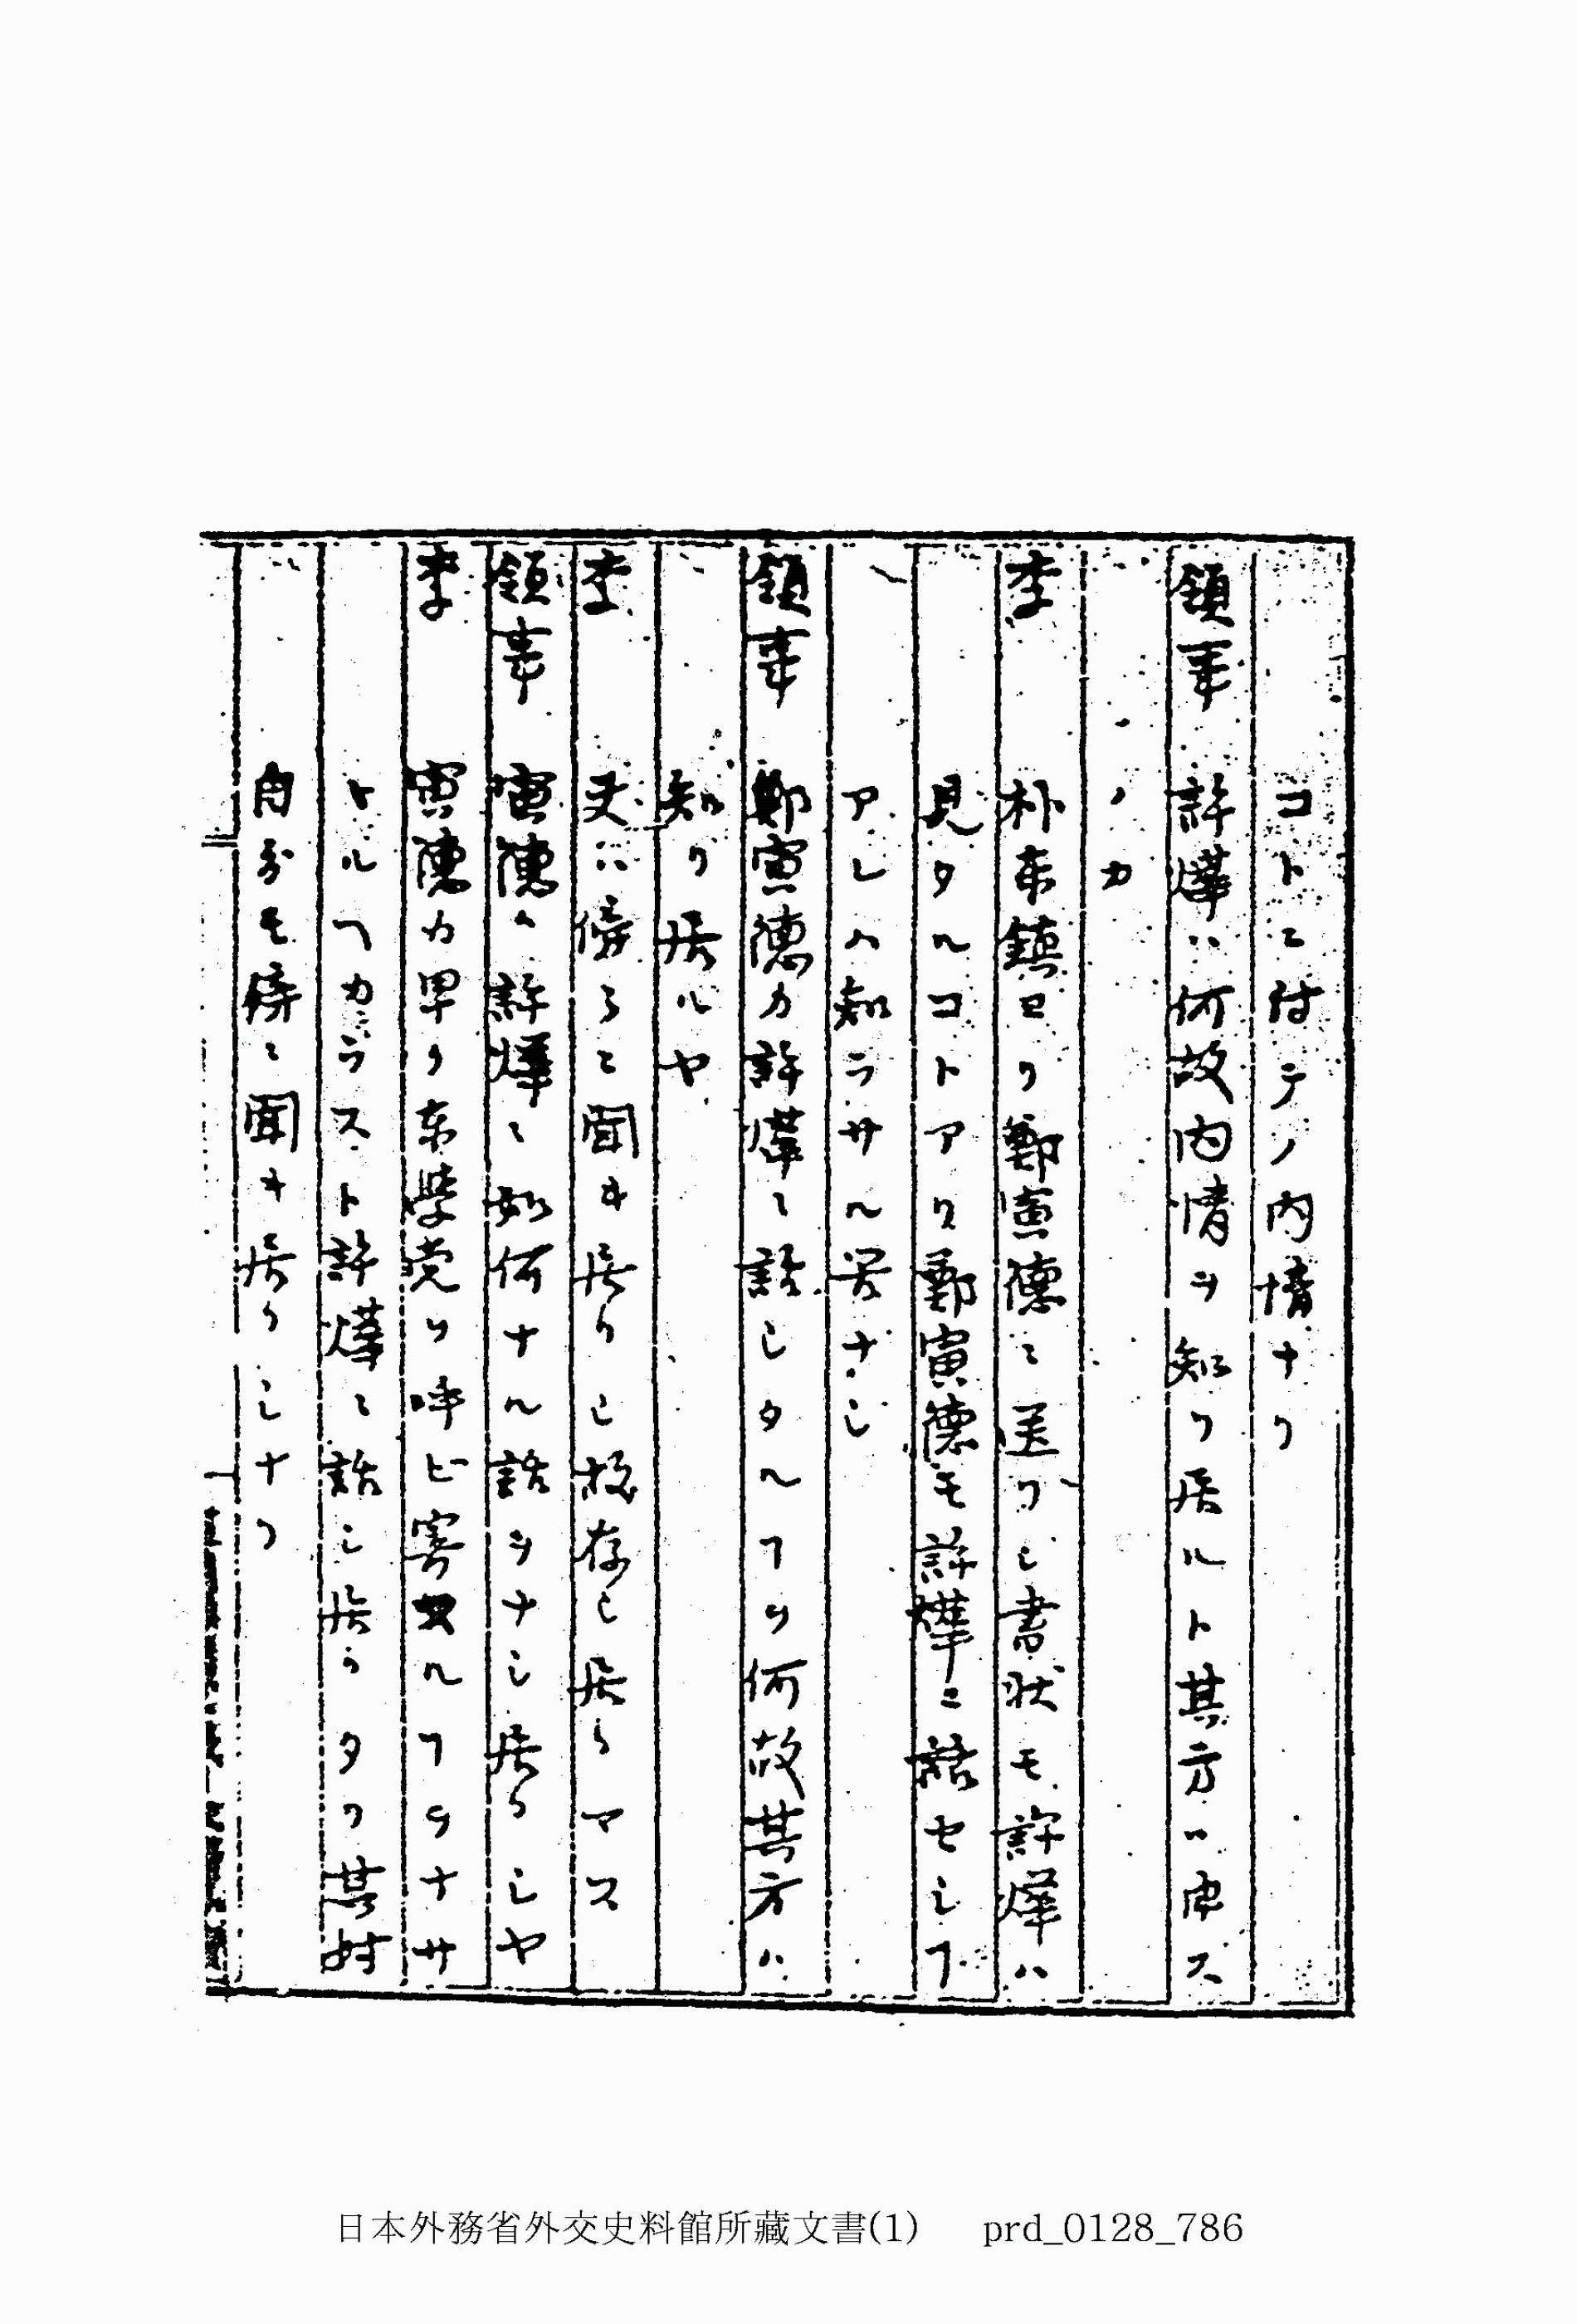 コトニ付テノ内情ナリ
領事 許燁ハ何故内情ヲ知リ居ルト其方ハ申ス
ノカ
李 朴東鎮ヨリ鄭寅德ニ送リシ書状モ許燁ハ
見タルコトアリ鄭寅德モ許燁ニ話セシヿ
アレハ知ラサル筈ナシ
領事 鄭寅德カ許燁ニ話シタルヿヲ何故其方ハ
知リ居ルヤ
李 夫ハ傍ラニ聞キ居リシ故存シ居リマス
領事 寅德ハ許燁ニ如何ナル話ヲナシ居リシヤ
李 寅德カ早ク東学党ヲ呼ビ寄スルヿヲナサ
トルヘカラスト許燁ニ話シ居リタリ其時
自分モ傍ニ聞キ居リシナリ
日本外務省外交史料館所藏文書(1) prd_0128_786